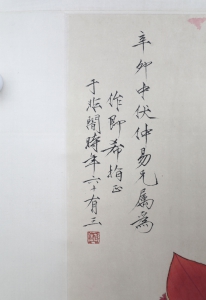 辛卯中伏仲易兄属为
作即希指正
于非闇時年六十有三